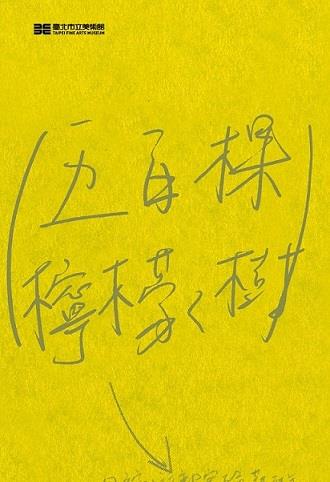 臺北市立美術館
TAIPEI FINE ARTS MUSEUM
(五百棵
檸檬く樹)